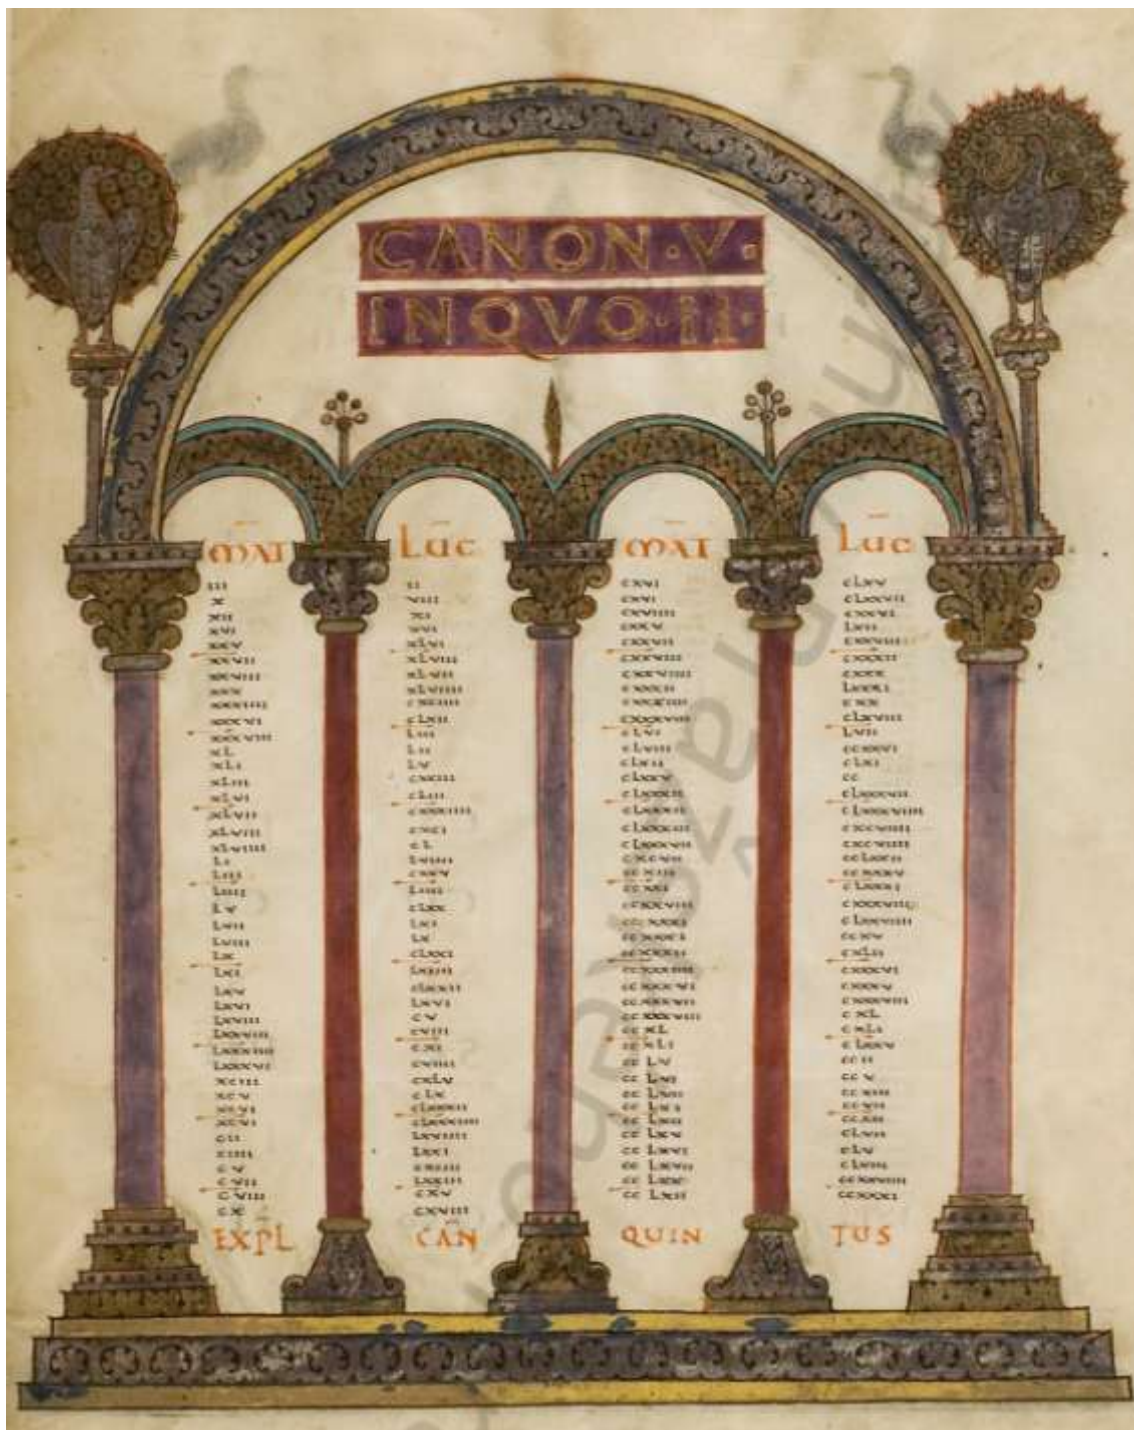 CANON·V·
INQVO·II·
MAT
III
X
XII
XVI
XXV
XXVII
XXVIII
XXX
XXXIIII
XXXVI
XXXVIII
XL
XLI
XLIII
XLVI
XLVII
XLVIII
XLVIIII
LI
LIII
LIIII
LV
LVII
LVIII
LX
LXI
LXV
LXVI
LXVIII
LXXXIIII
LXXXVI
XCIII
XCV
XCVI
XCVI
CII
CIIII
CV
CVII
CVIII
CX
EXPL
LUC
II
VIII
XI
XVI
XLVI
XLVIII
XLVII
XLVIIII
CXCIIII
CLXII
LIII
LII
LV
CXXIII
CLIII
CXXXIIII
CXCI
CL
LVIIII
CXXV
LIIII
CLXX
LXI
LX
CLXXI
LXIIII
CLXXII
LXVI
CV
CVIII
CXI
CVIIII
CXLV
CLX
CLXXXII
CLXXXIIII
LXVIIII
LXXI
LXXIII
CXV
CXVIII
CAN
MAT
CXVI
CXVI
CXVIIII
CXXV
CXXVII
CXXVIII
CXXVIIII
CXXXII
CXXXIIII
CXXXVIII
CLVI
CLVIII
CLXII
CLXXV
CLXXXII
CLXXXIII
CLXXXVII
CXCVII
CCXIII
CCXXI
CCXXVIII
CCXXXI
CCXXXII
CCXXXIIII
CCXXXVI
CCXXXVII
CCXXXVIII
CCXL
CCXLI
CCLV
CCLVI
CCLVII
CCLXI
CCLXII
CCLXV
CCLXVI
CCLXVII
CCLXII
QUIN
LUC
CLXV
CLXXVII
CXXVI
LXII
CXXVIII
CXXXII
CXXX
LXXXI
CXX
CLXVIII
LVII
CCXXVI
CLXI
CC
CLXXXVII
CLXXXVIIII
CXCVIII
CXCVIIII
CCLXXII
CCXXXV
CLXXXI
CXXXVIIII
CLXXVIIII
CCXV
CXLII
CXXXVI
CXXXV
CXXXVIII
CXL
CXLI
CLXXV
CCII
CCV
CCXIII
CCVII
CCXII
CLVII
CLV
CLVIII
CCXXVIIII
CCXXXI
TUS